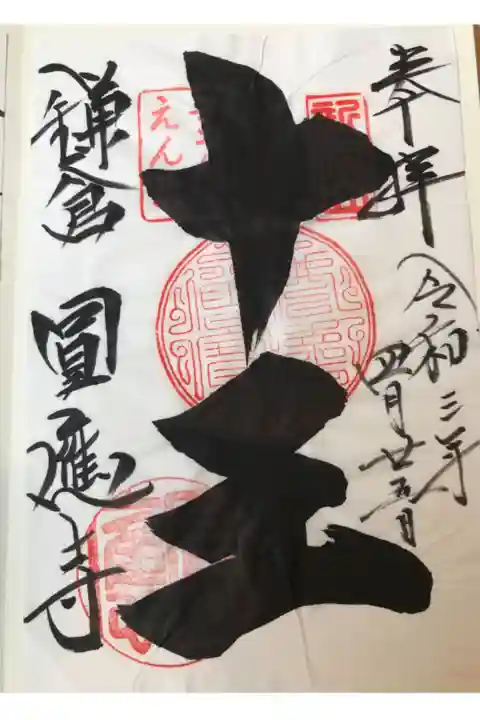 奉拝
令和三年
四月廿五日
十王
鎌倉 圓應寺
えん